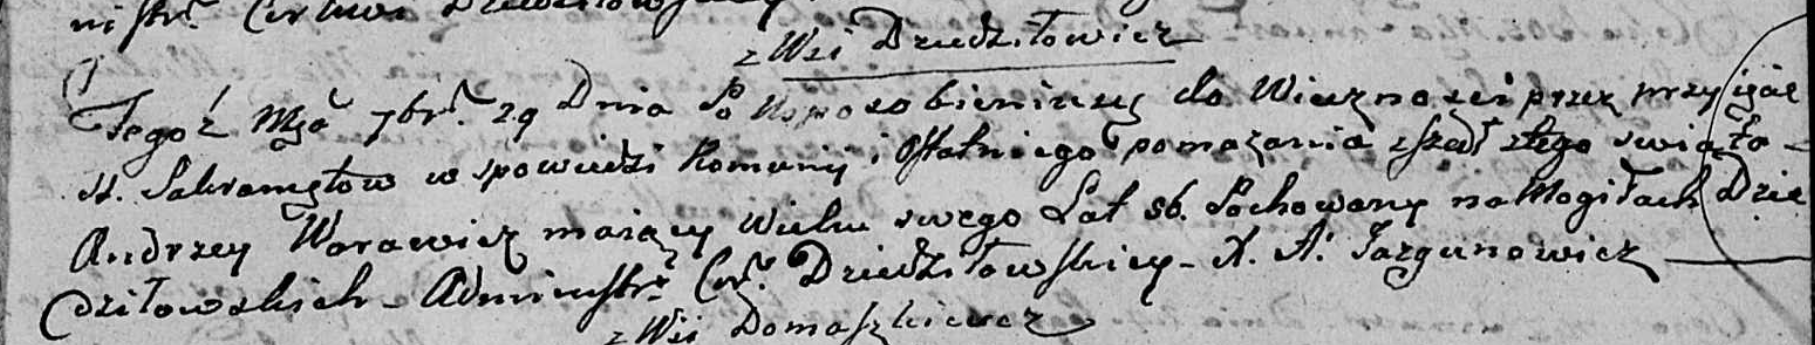 nistr. Cerkwi Dziedziłowskiey
z Wsi Dziedziłowicz
Tegoż Mca 7br. 29 Dnia Po Usposobieniu się do Wieczności przez przyięcie
SS. Sakramętow w spowiedzi Komunij i Ostatniego pomazania zszedł z tego swiata
Andrzey Worawicz maiący Wieku swego Lat 56. Pochowany na Mogiłach Dzie
dziłowskich – Administr. Cer. Dziedziłowskiey – X. A. Jazgunowicz
z Wsi Domaszkiewicz